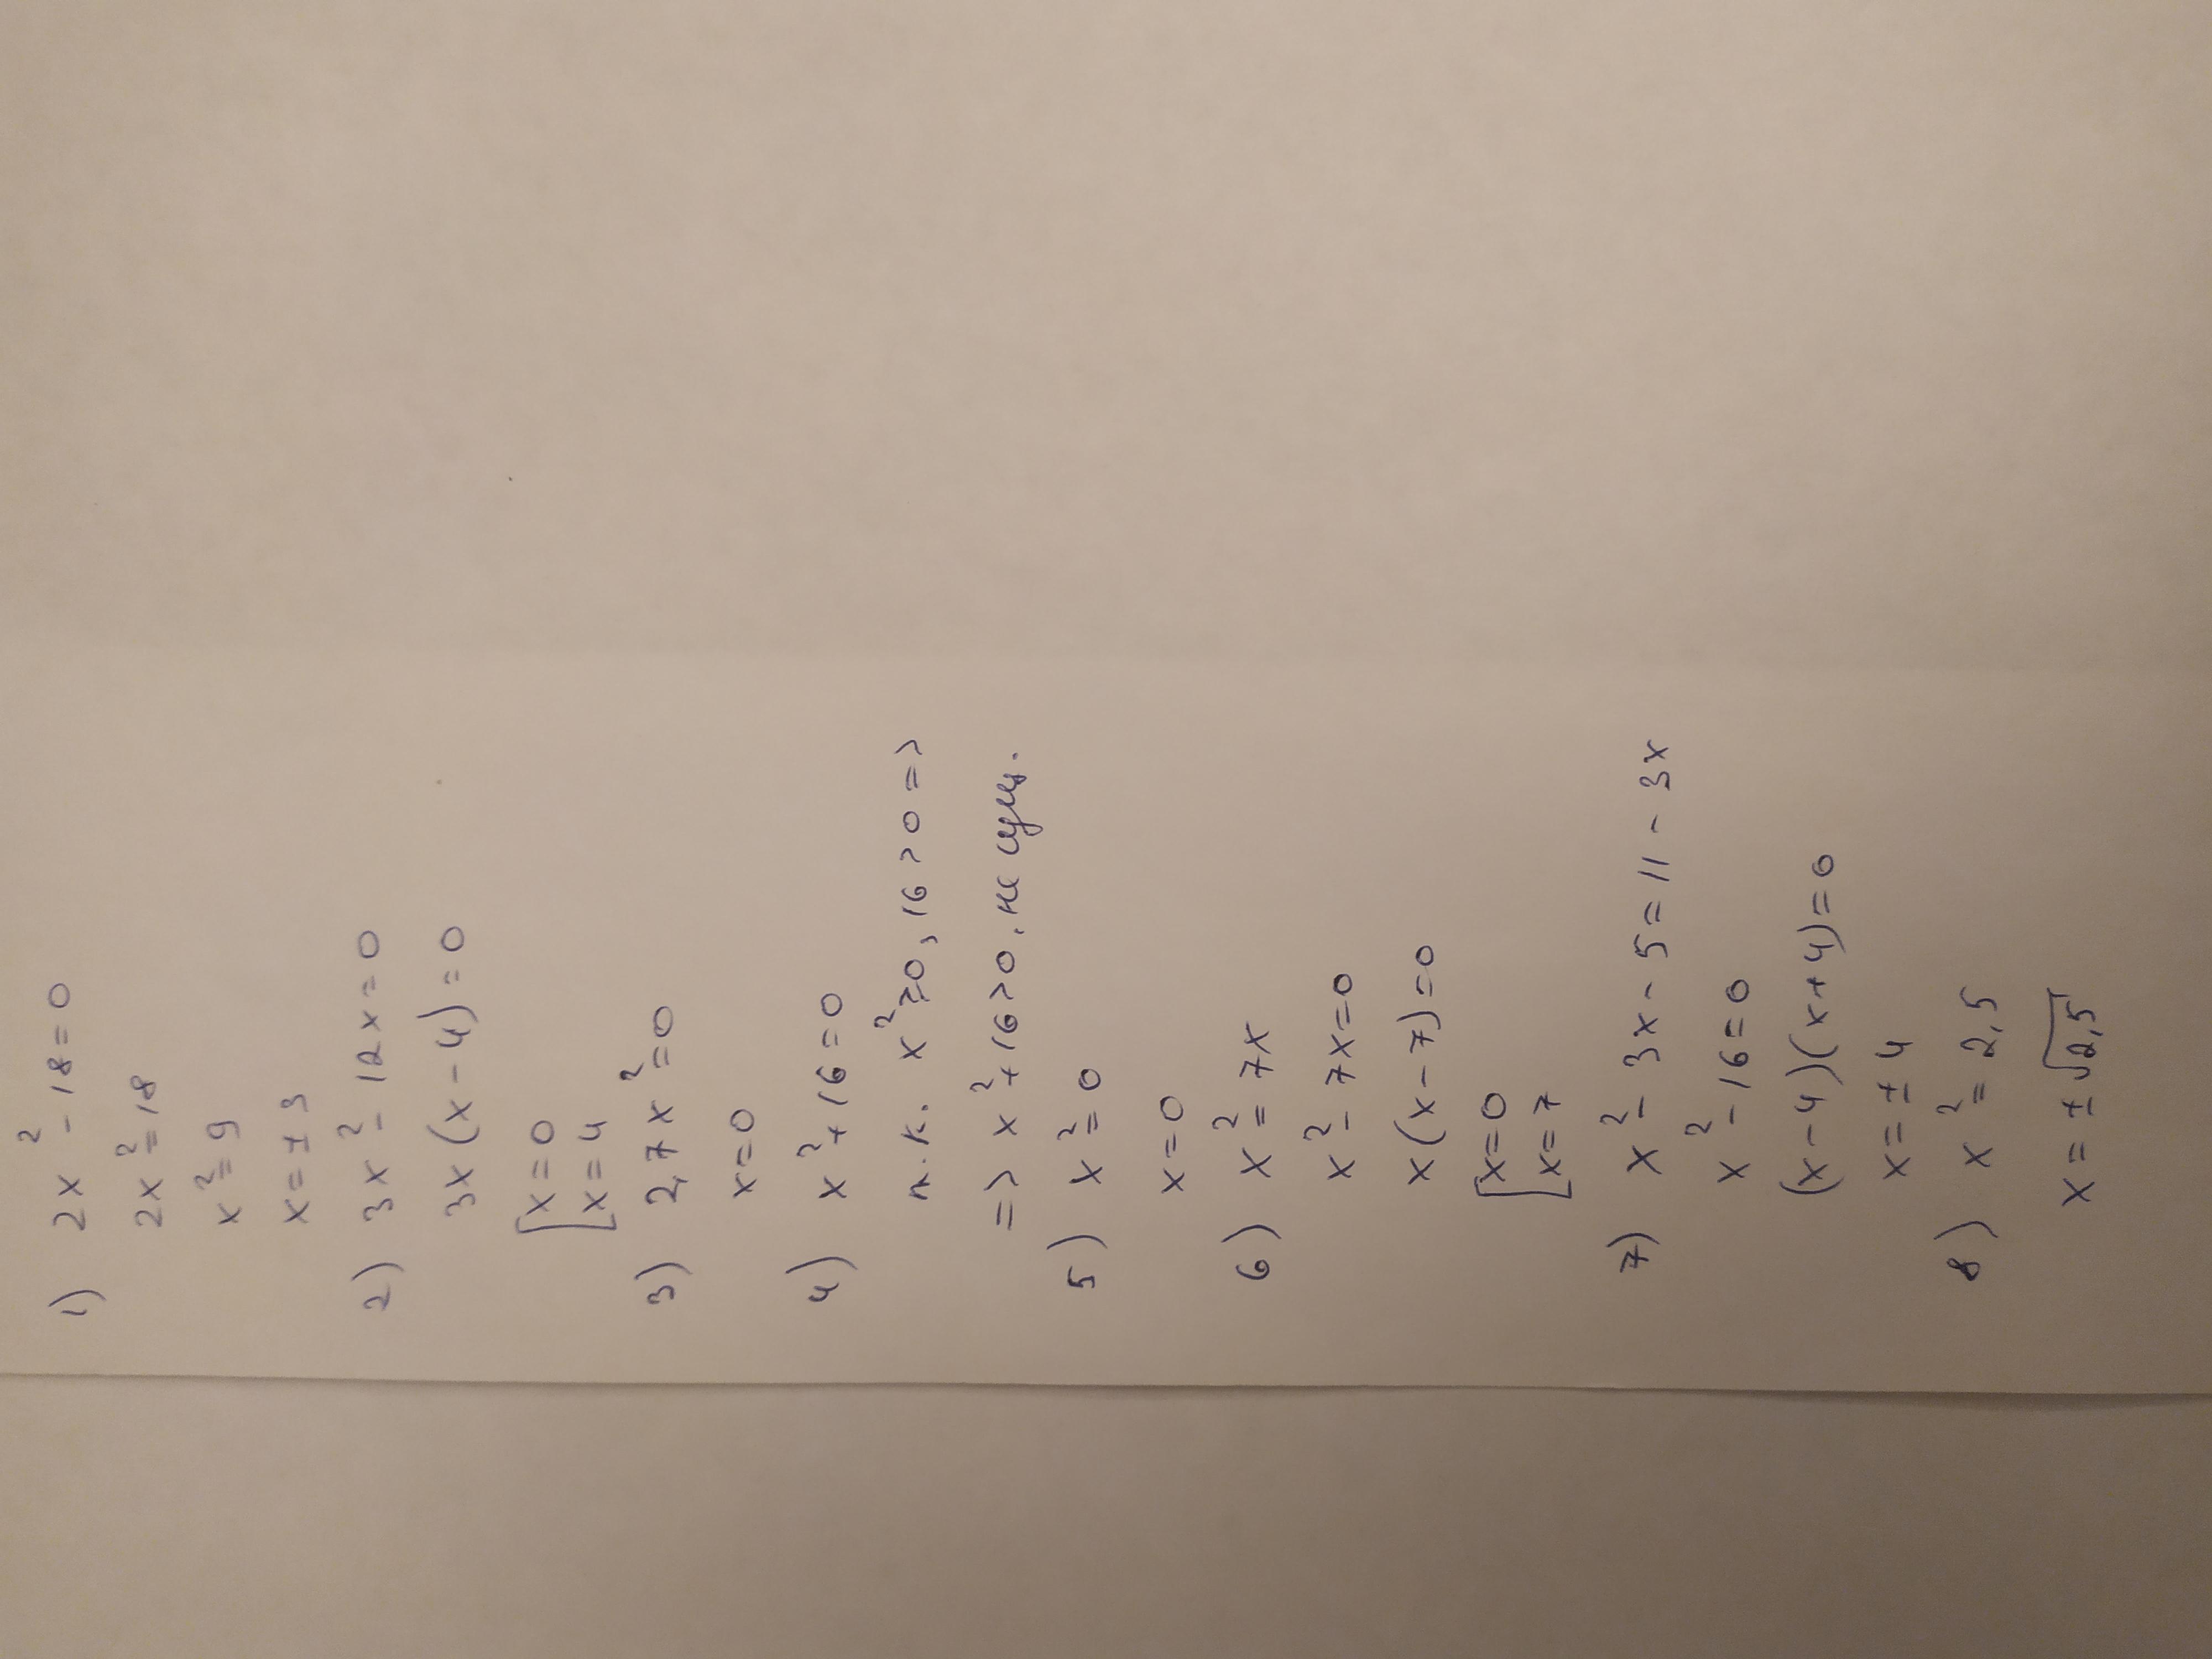 1) 2x² - 18 = 0
2x² = 18
x² = 9
x = ± 3
2) 3x² - 12x = 0
3x(x - 4) = 0
[x = 0
[x = 4
3) 2,7x² = 0
x = 0
4) x² + 16 = 0
т.к. x² ≥ 0, 16 > 0 =>
=> x² + 16 > 0, не сущ.
5) x² = 0
x = 0
6) x² = 7x
x² - 7x = 0
x(x - 7) = 0
[x = 0
[x = 7
7) x² - 3x - 5 = 11 - 3x
x² - 16 = 0
(x - 4)(x + 4) = 0
x = ± 4
8) x² = 2,5
x = ± √2,5